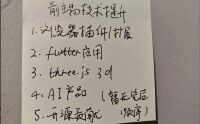 前端技术提升
1. 浏览器插件/扩展
2. flutter应用
3. three.js 3d
4. AI产品
5. 开源贡献